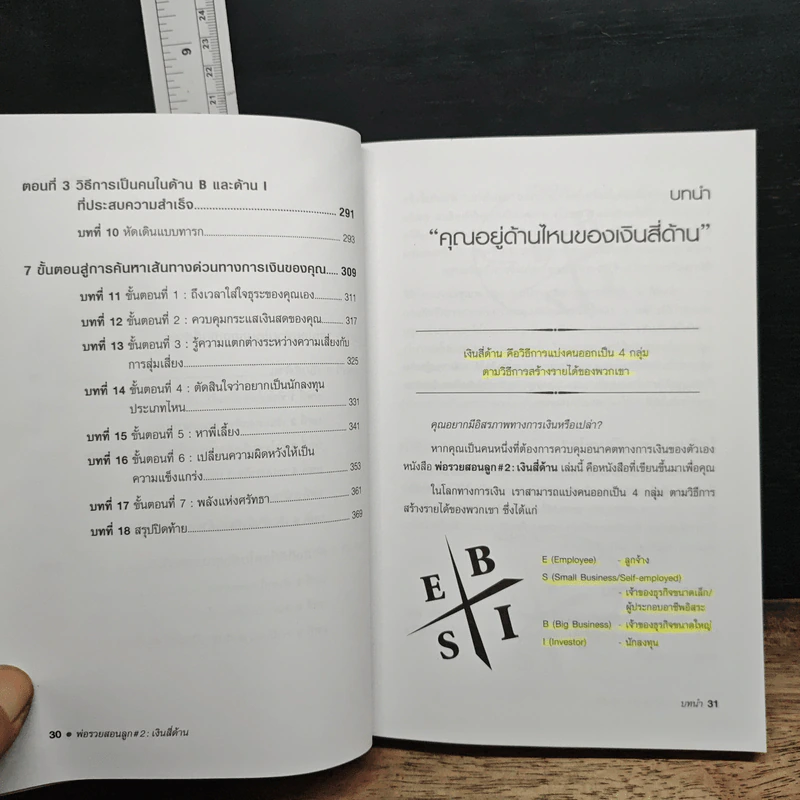 9
8
23
22
21
ตอนที่ 3 วิธีการเป็นคนในด้าน B และด้าน I
ที่ประสบความสำเร็จ.......................................... 291
บทที่ 10 หัดเดินแบบทารก............................................. 293
7 ขั้นตอนสู่การค้นหาเส้นทางด่วนทางการเงินของคุณ..... 309
บทที่ 11 ขั้นตอนที่ 1 : ถึงเวลาใส่ใจธุระของคุณเอง............ 311
บทที่ 12 ขั้นตอนที่ 2 : ควบคุมกระแสเงินสดของคุณ......... 317
บทที่ 13 ขั้นตอนที่ 3 : รู้ความแตกต่างระหว่างความเสี่ยงกับ
การสุ่มเสี่ยง........................................ 325
บทที่ 14 ขั้นตอนที่ 4 : ตัดสินใจว่าอยากเป็นนักลงทุน
ประเภทไหน........................................ 331
บทที่ 15 ขั้นตอนที่ 5 : หาพี่เลี้ยง................................. 341
บทที่ 16 ขั้นตอนที่ 6 : เปลี่ยนความผิดหวังให้เป็น
ความแข็งแกร่ง.................................... 353
บทที่ 17 ขั้นตอนที่ 7 : พลังแห่งศรัทธา........................ 361
บทที่ 18 สรุปปิดท้าย............................................... 369
30 ● พ่อรวยสอนลูก#2 : เงินสี่ด้าน
บทนำ
“คุณอยู่ด้านไหนของเงินสี่ด้าน”
เงินสี่ด้าน คือวิธีการแบ่งคนออกเป็น 4 กลุ่ม
ตามวิธีการสร้างรายได้ของพวกเขา
คุณอยากมีอิสรภาพทางการเงินหรือเปล่า?
หากคุณเป็นคนหนึ่งที่ต้องการควบคุมอนาคตทางการเงินของตัวเอง
หนังสือ พ่อรวยสอนลูก#2 : เงินสี่ด้าน เล่มนี้ คือหนังสือที่เขียนขึ้นมาเพื่อคุณ
ในโลกทางการเงิน เราสามารถแบ่งคนออกเป็น 4 กลุ่ม ตามวิธีการ
สร้างรายได้ของพวกเขา ซึ่งได้แก่
E B
S I
E (Employee) - ลูกจ้าง
S (Small Business/Self-employed)
- เจ้าของธุรกิจขนาดเล็ก/
ผู้ประกอบอาชีพอิสระ
B (Big Business) - เจ้าของธุรกิจขนาดใหญ่
I (Investor) - นักลงทุน
บทนำ 31